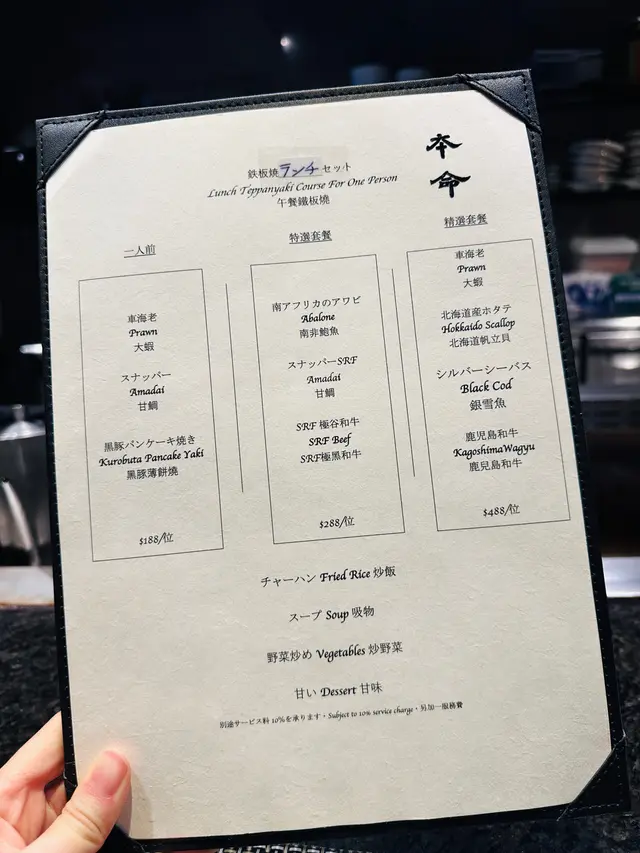 本命
鉄板焼ランチセット
Lunch Teppanyaki Course For One Person
午餐鐵板燒
一人前
車海老
Prawn
大蝦
スナッパー
Amadai
甘鯛
黒豚パンケーキ焼き
Kurobuta Pancake Yaki
黑豚薄餅燒
$188/位
特選套餐
南アフリカのアワビ
Abalone
南非鮑魚
スナッパーSRF
Amadai
甘鯛
SRF 極谷和牛
SRF Beef
SRF極黑和牛
$288/位
精選套餐
車海老
Prawn
大蝦
北海道産ホタテ
Hokkaido Scallop
北海道帆立貝
シルバーシーバス
Black Cod
銀雪魚
鹿児島和牛
KagoshimaWagyu
鹿兒島和牛
$488/位
チャーハン Fried Rice 炒飯
スープ Soup 吸物
野菜炒め Vegetables 炒野菜
甘い Dessert 甘味
別途サービス料 10%を承ります・Subject to 10% service charge・另加一服務費